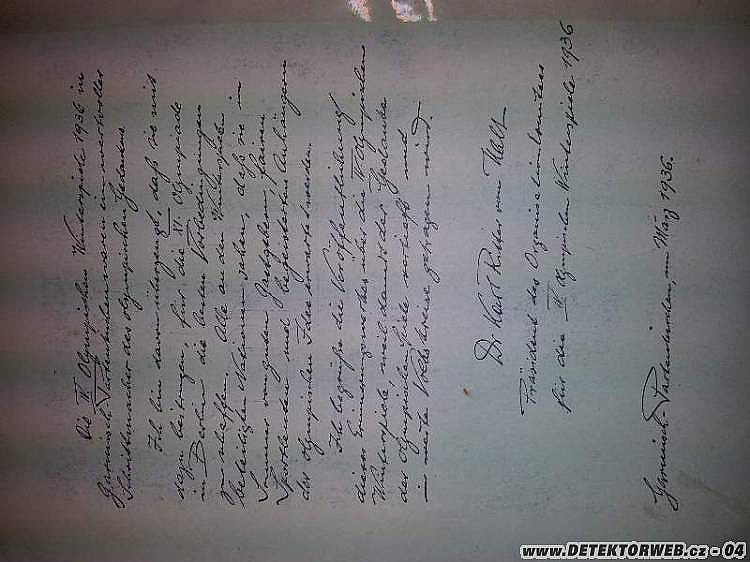 Die IV. Olympischen Winterspiele 1936 in
Garmisch-Partenkirchen waren ein wertvoller
Schrittmacher des olympischen Gedankens.
Ich bin davon überzeugt, daß sie mit
dazu beitragen, für die XI. Olympiade
in Berlin die besten Vorbedingungen
zu schaffen. Alle an den Winterspielen
beteiligten Nationen sahen, daß sie in
unserem Gastgeber, fairen
Sportleuten und begeisterten Anhängern
der olympischen Idee zu tun haben.
Ich begrüße die Veröffentlichung
dieses Erinnerungswerkes über die IV. Olympischen
Winterspiele, weil damit der Gedanke
der Olympischen Spiele vertieft und
in weite Volkskreise getragen wird.
Dr. Karl Ritter von Halt
Präsident des Organisationskomitees
für die IV. Olympischen Winterspiele 1936
Garmisch-Partenkirchen, im März 1936.
www.DETEKTORWEB.cz - 04